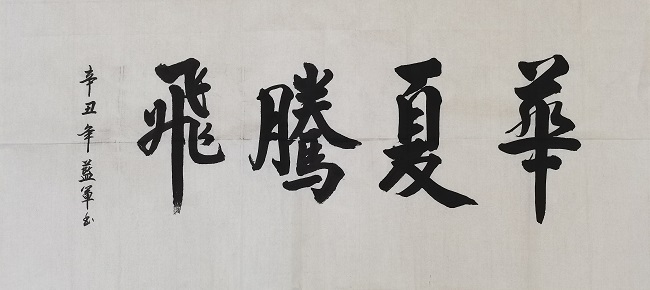 華夏騰飛
辛丑年藍軍书